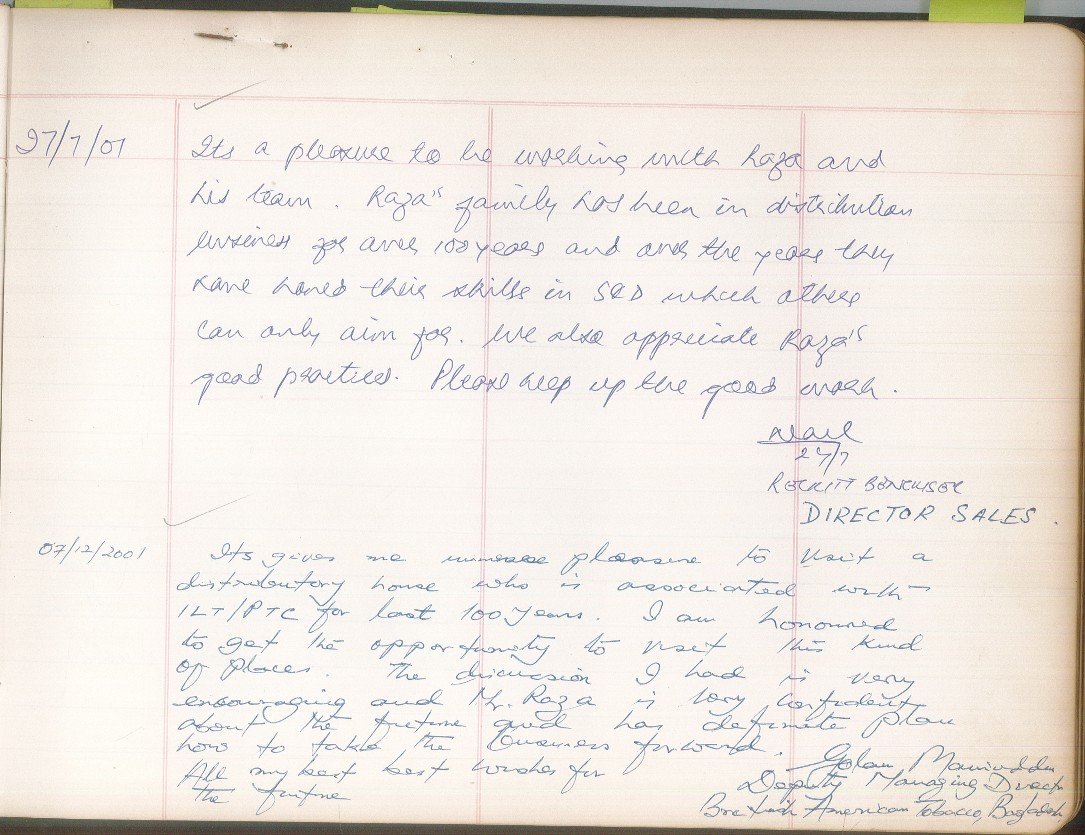 27/7/01
Its a pleasure to be working with Raza and
his team. Raza's family has been in distribution
business for over 100 years and over the years they
have honed their skills in S&D which others
can only aim for. We also appreciate Raza's
good practices. Please keep up the good work.
27/7
RECKITT BENCKISER
DIRECTOR SALES.
07/12/2001
Its gives me immense pleasure to visit a
distributory house who is associated with
ILT/PTC for last 100 years. I am honoured
to get the opportunity to visit this kind
of places. The discussion I had is very
encouraging and Mr. Raza is very confident
about the future and has definite plan
how to take the business forward.
All my best best wishes for
the future
Golam Mainuddin
Deputy Managing Director
British American Tobacco,